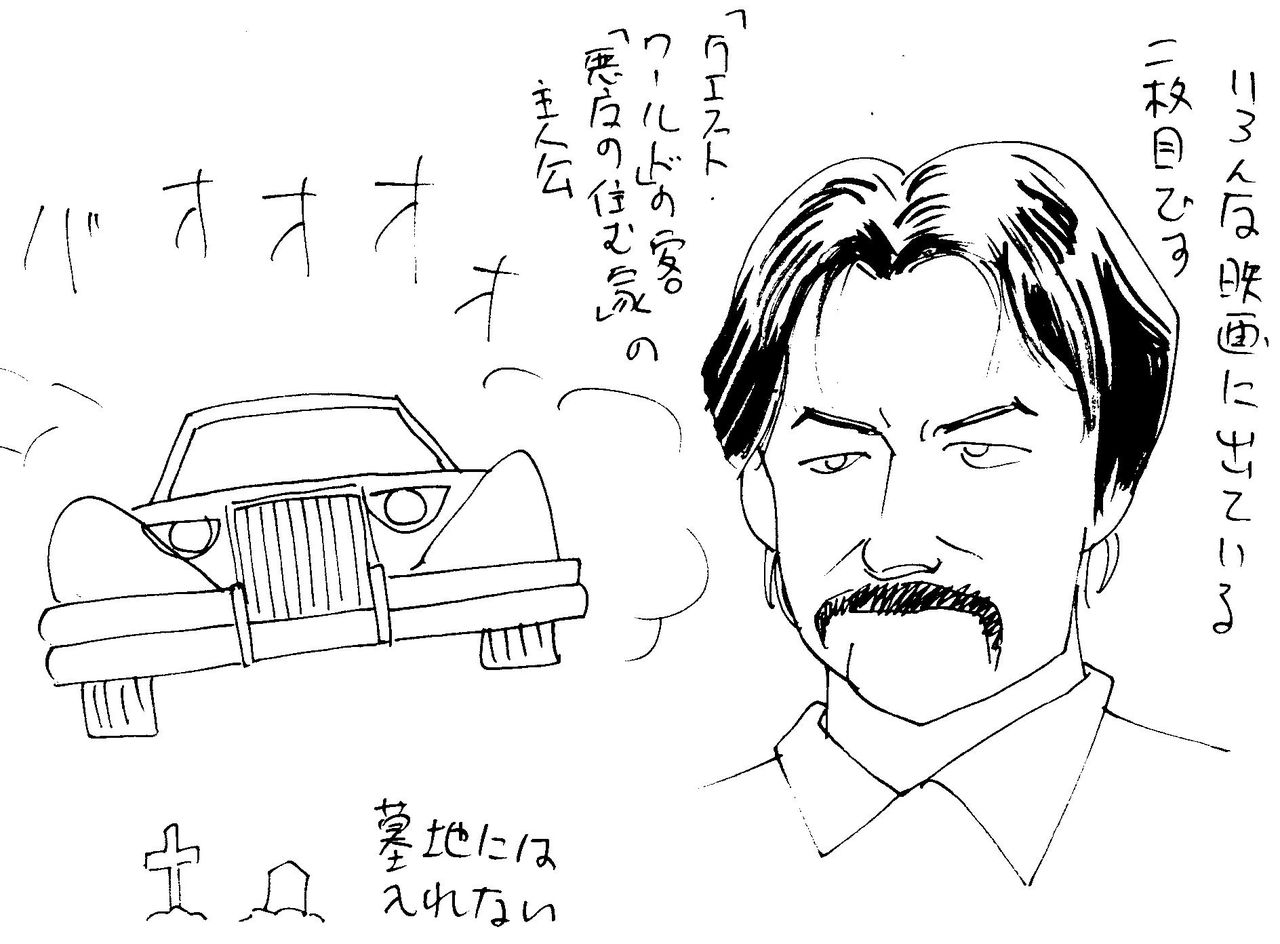 いろんな映画に出ている
二枚目です
「ウエスト
ワールド」の客。
「悪魔の住む家」の
主人公
バオオオオ
墓地には
入れない